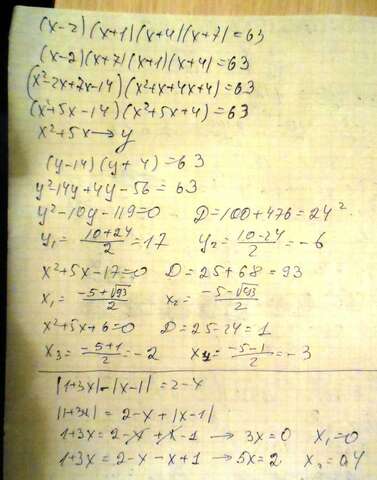 (x-2)(x+1)(x+4)(x+7)=63
(x-2)(x+7)(x+1)(x+4)=63
(x²-2x+7x-14)(x²+x+4x+4)=63
(x²+5x-14)(x²+5x+4)=63
x²+5x→y
(y-14)(y+4)=63
y²-14y+4y-56=63
y²-10y-119=0 D=100+476=24²
y₁=(10+24)/2=17 y₂=(10-24)/2=-6
x²+5x-17=0 D=25+68=93
x₁=(-5+√93)/2 x₂=(-5-√93)/2
x²+5x+6=0 D=25-24=1
x₃=(-5+1)/2=-2 x₄=(-5-1)/2=-3
|1+3x|-|x-1|=2-x
|1+3x|=2-x+|x-1|
1+3x=2-x+x-1→3x=0 x₁=0
1+3x=2-x-x+1→5x=2 x₂=0,4